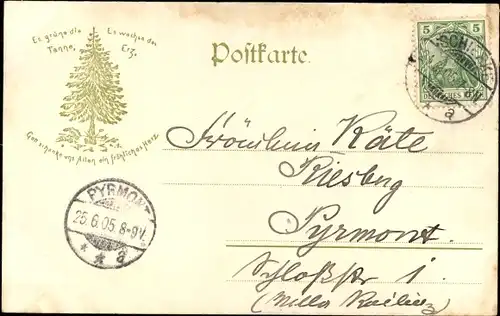 Es grüne die Tanne,
Es wachse das Erz,
Gott schenke uns Allen ein fröhliches Herz.
Postkarte.
5 5
DEUTSCHES
Fräulein Käte
Riesberg
Pyrmont.
Schloßstr 1.
(Villa
PYRMONT
25.6.05.8-9V.
* * a
* * a